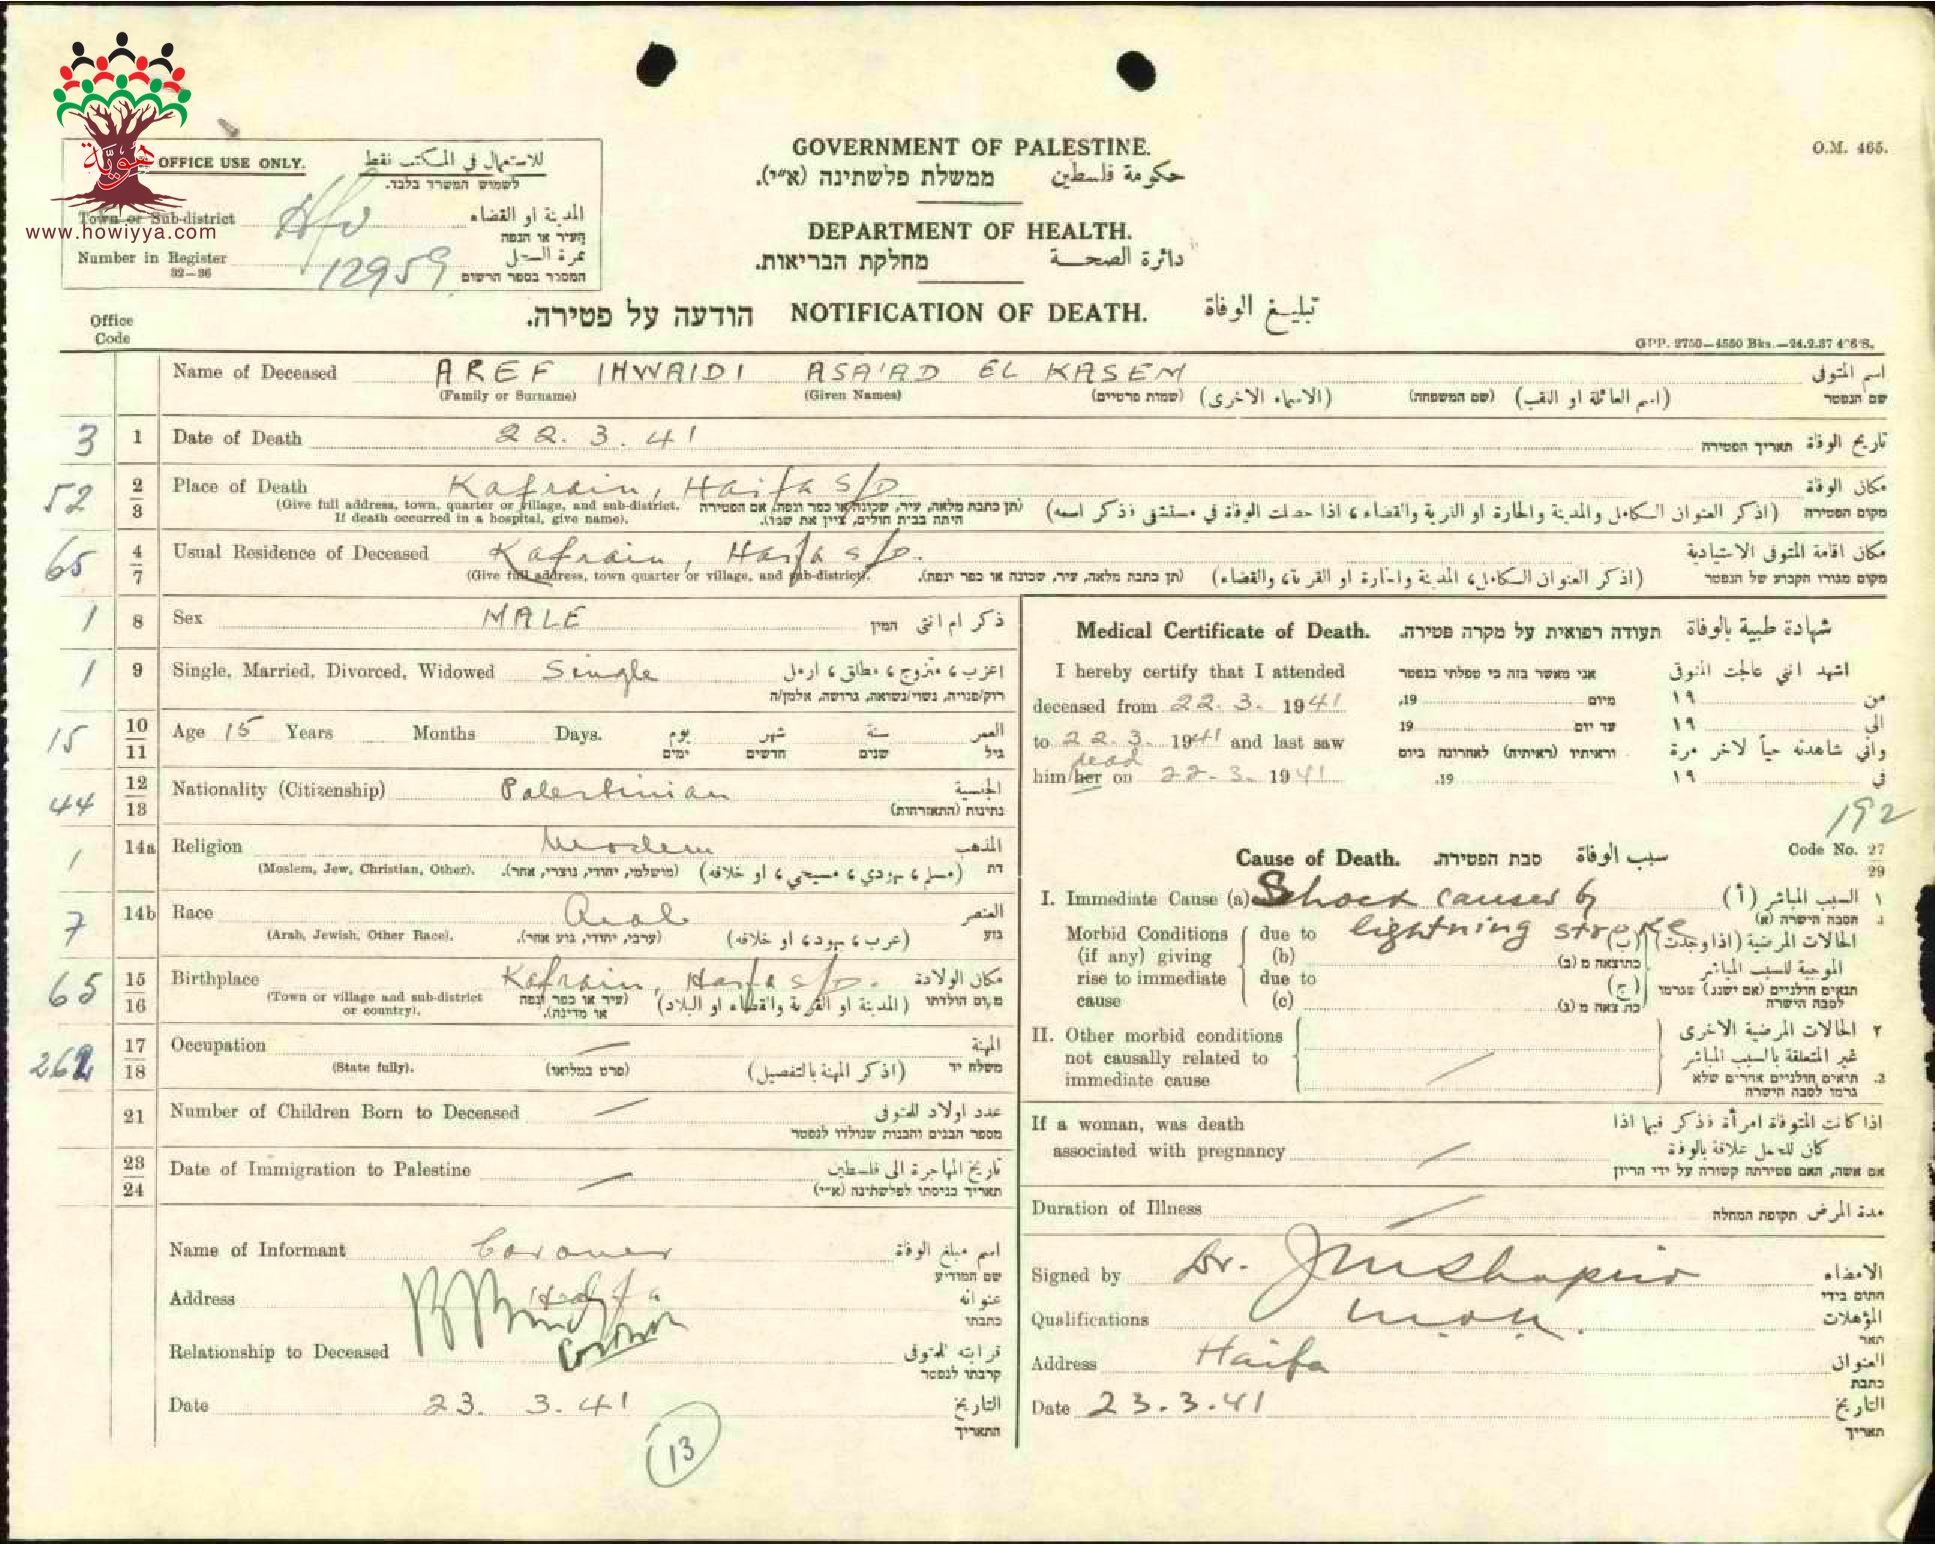 هويّة
www.howiyya.com
O.M. 465.
OFFICE USE ONLY. للاستعمال في المكتب فقط
לשמוש המשרד בלבד.
Town or Sub-district Hfa المدينة او القضاء
העיר או הנפה
Number in Register 12959 نمرة السجل
32—36 המספר בספר הרשום
GOVERNMENT OF PALESTINE.
ממשלת פלשתינה (א״י). حكومة فلسطين
DEPARTMENT OF HEALTH.
מחלקת הבריאות. دائرة الصحة
הודעה על פטירה. NOTIFICATION OF DEATH. تبليغ الوفاة
Office
Code
GPP. 2750—4550 Bks.—24.2.37
Name of Deceased AREF IHWAIDI ASA'AD EL KASEM اسم المتوفى
(Family or Surname) (Given Names) (שמות פרטיים) (الاسماء الاخرى) (שם המשפחה) (اسم العائلة او اللقب) שם הנפטר
3 1 Date of Death 22. 3. 41 תאריך הפטירה تاريخ الوفاة
52 2 3 Place of Death Kafrain, Haifa S/D مكان الوفاة
(Give full address, town, quarter or village, and sub-district. (תן כתבת מלאה, עיר, שכונה או כפר ונפה. אם הפטירה (اذكر العنوان الكامل والمدينة والحارة او القرية والقضاء، اذا حصلت الوفاة في مستشفى فذكر اسمه) מקום הפטירה
If death occurred in a hospital, give name). היתה בבית חולים, ציין את שמו).
65 4 7 Usual Residence of Deceased Kafrain, Haifa S/D. مكان اقامة المتوفى الاعتيادية
(Give full address, town quarter or village, and sub-district). (תן כתבת מלאה, עיר, שכונה או כפר ונפה). (اذكر العنوان الكامل، المدينة والحارة او القرية، والقضاء) מקום מגורו הקבוע של הנפטר
1 8 Sex MALE המין ذكر ام انثى
1 9 Single, Married, Divorced, Widowed Single اعزب، متزوج، مطلق، ارمل
רוק/פנויה, נשוי/נשואה, גרושה, אלמן/ה
15 10 11 Age 15 Years Months Days. يوم شهر سنة العمر
ימים חדשים שנים גיל
44 12 13 Nationality (Citizenship) Palestinian الجنسية
נתינות (התאזרחות)
1 14a Religion Moslem المذهب
(Moslem, Jew, Christian, Other). (מושלמי, יהודי, נוצרי, אחר). (مسلم، يهودي، مسيحي، او خلافه) דת
7 14b Race Arab العنصر
(Arab, Jewish, Other Race). (ערבי, יהודי, גזע אחר). (عرب، يهود، او خلافه) גזע
65 15 16 Birthplace Kafrain, Haifa S/D. مكان الولادة
(Town or village and sub-district or country). (עיר או כפר ונפה או מדינה). (المدينة او القرية والقضاء او البلاد) מקום הולדתו
262 17 18 Occupation — المهنة
(State fully). (פרט במלואו) (اذكر المهنة بالتفصيل) משלח יד
21 Number of Children Born to Deceased — عدد اولاد المتوفى
מספר הבנים והבנות שנולדו לנפטר
23 24 Date of Immigration to Palestine — تاريخ المهاجرة الى فلسطين
תאריך כניסתו לפלשתינה (א״י)
Name of Informant Coroner اسم مبلغ الوفاة
שם המודיע
Address Haifa عنوانه
כתבתו
Coroner
Relationship to Deceased قرابته للمتوفى
קרבתו לנפטר
Date 23. 3. 41 التاريخ
התאריך
13
Medical Certificate of Death. תעודה רפואית על מקרה פטירה. شهادة طبية بالوفاة
I hereby certify that I attended אני מאשר בזה כי טפלתי בנפטר اشهد انني عالجت المتوفى
deceased from 22. 3. 1941 19, מיום ١٩ من
to 22. 3. 1941 and last saw 19 עד יום ١٩ الى
dead וראיתיו (ראיתיה) לאחרונה ביום واني شاهدته حياً لاخر مرة
him/her on 22. 3. 1941 19. ١٩ في
192
Cause of Death. סבת הפטירה. سبب الوفاة Code No. 27 29
I. Immediate Cause (a) Schock causes by السبب المباشر (أ) ١
הסבה הישרה (א)
lightning stroke
Morbid Conditions due to (ب) الحالات المرضية (اذا وجدت)
(if any) giving (b) כתוצאה מ (ב) الموجبة للسبب المباشر
rise to immediate due to (ج) תנאים חולניים (אם ישנם) שגרמו
cause (c) כתוצאה מ (ג) לסבה הישרה
II. Other morbid conditions الحالات المرضية الاخرى ٢
not causally related to غير المتعلقة بالسبب المباشر
immediate cause תנאים חולניים אחרים שלא 2.
גרמו לסבה הישרה
If a woman, was death اذا كانت المتوفاة امرأة فذكر فيما اذا
associated with pregnancy — كان للحمل علاقة بالوفاة
אם אשה, האם פטירתה קשורה על ידי הריון
Duration of Illness — תקופת המחלה مدة المرض
Signed by Dr. الامضاء
חתום בידי
Qualifications المؤهلات
תאר
Address Haifa العنوان
כתבת
Date 23.3.41 التاريخ
תאריך